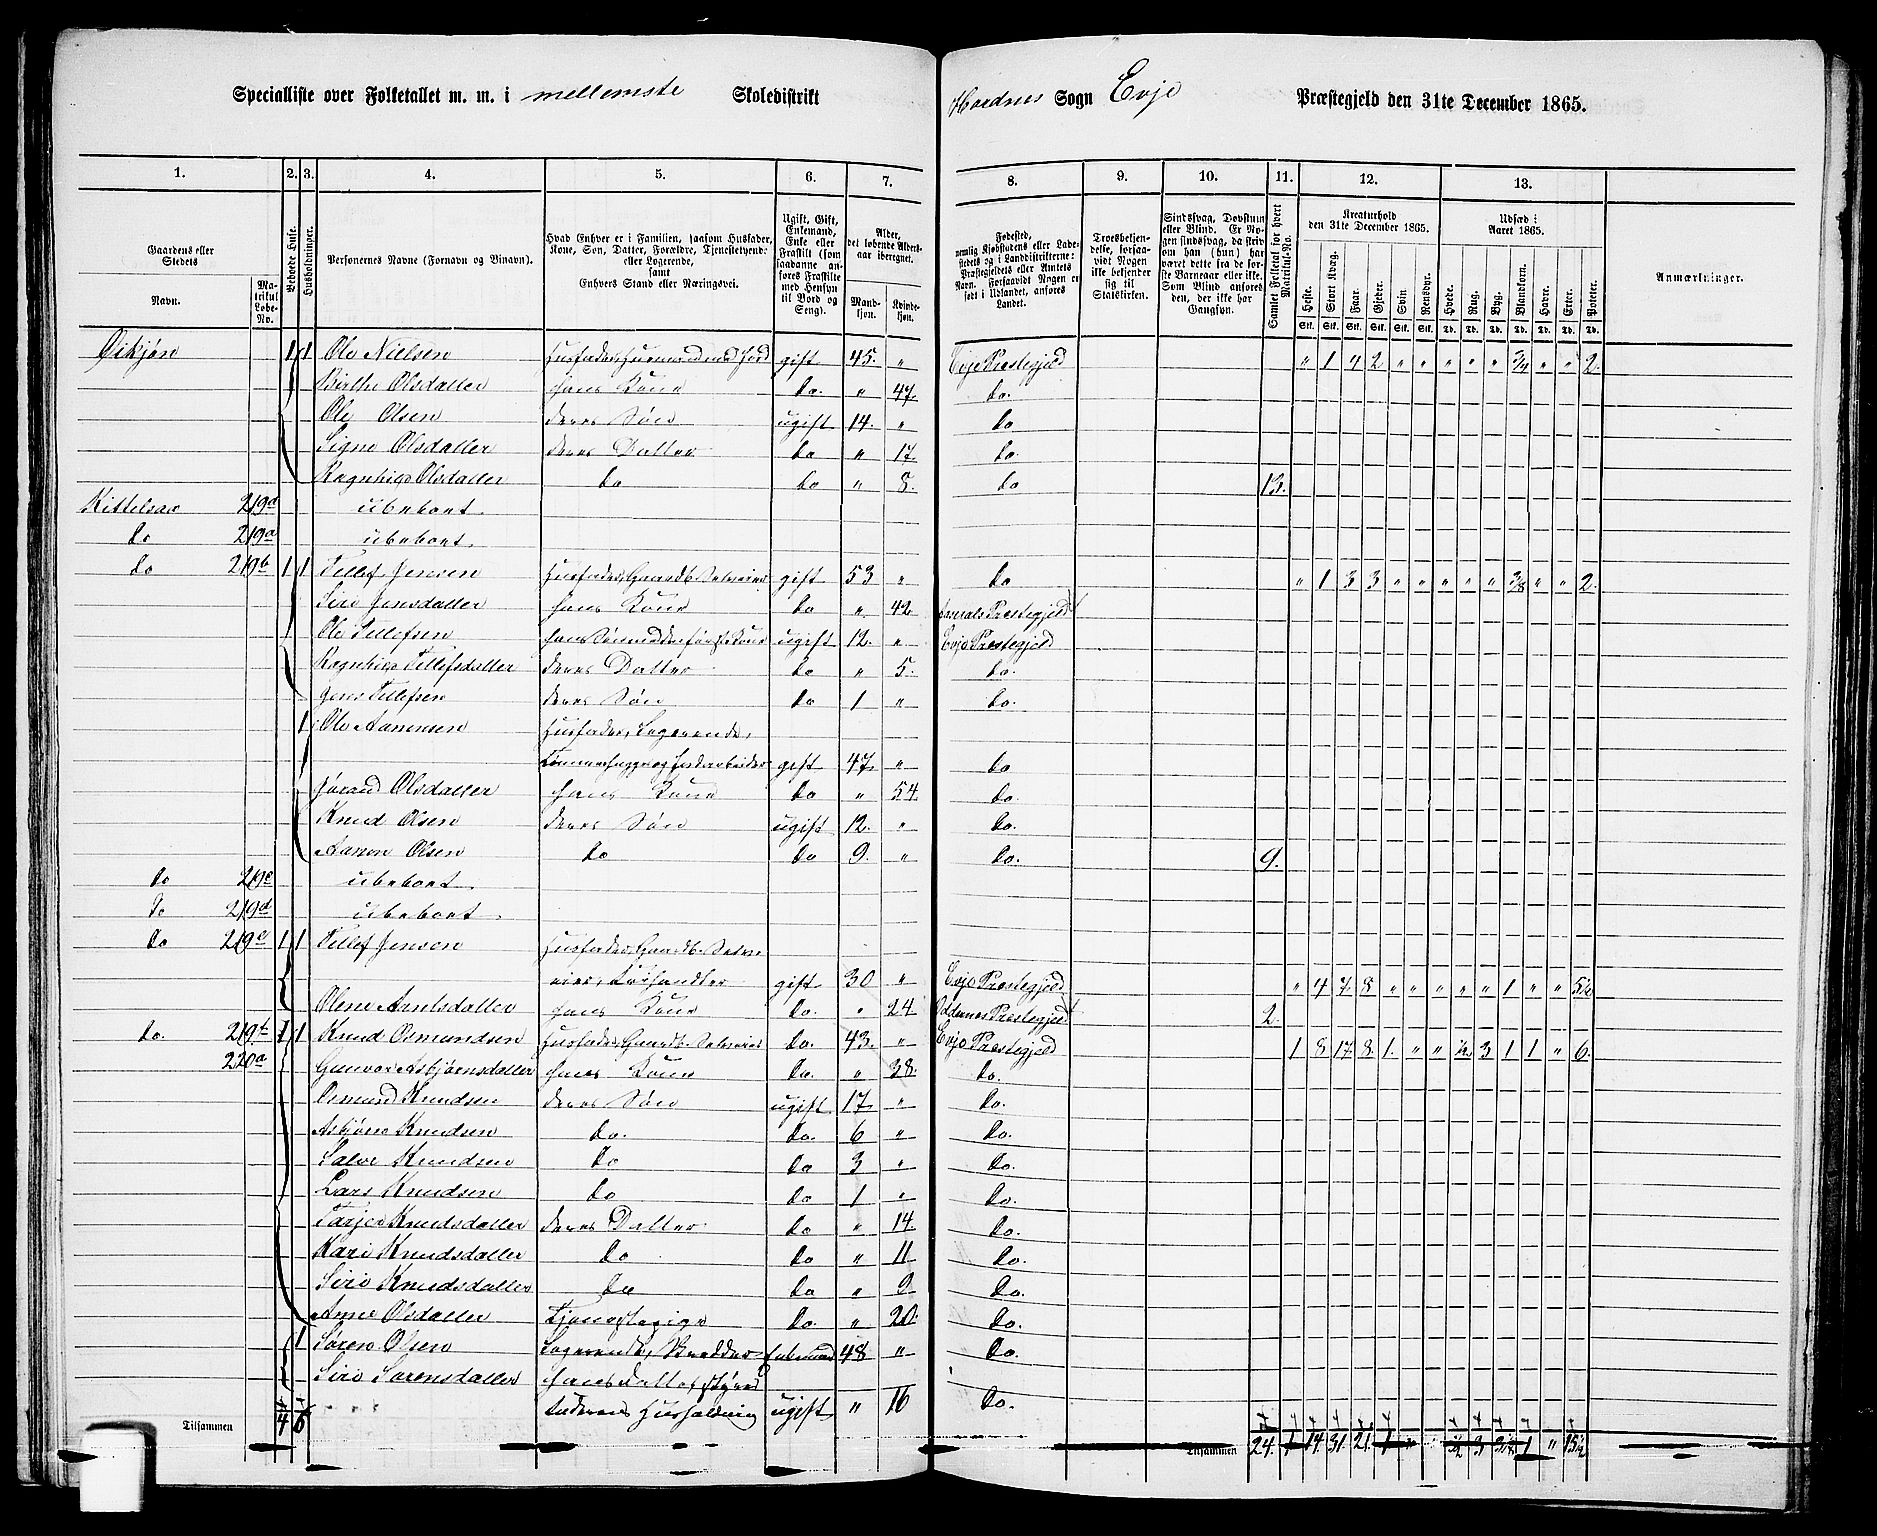 Specialliste over Folketallet m. m. i mellemste Skoledistrikt Hordnes Sogn Evje Præstegjeld den 31te December 1865.
1. 2. 3. 4. 5. 6. 7. 8. 9. 10. 11. 12. 13.
Gaardens eller Stedets
Navn.
Matrikul Løbe-No.
Beboede Huse.
Husholdninger.
Personernes Navne (Fornavn og Tilnavn).
Hvad Enhver er i Familien, saasom Husfader, Kone, Søn, Datter, Forældre, Tjenestetyende eller Logerende, samt Enhvers Stand eller Næringsvei.
Ugift, Gift, Enkemand, Enke eller Fraskilt (som saadanne anføres Fraskilte med Hensyn til Bord og Seng).
Alder, det løbende Alders-aar iberegnet.
Mand-kjøn. Kvinde-kjøn.
Fødested, nemlig Kjøbstedens eller Ladestedets og i Landdistrikterne: Præstegjeldets eller Amtets Navn. Forsaavidt Nogen er født i Udlandet, anføres Landet.
Troesbekjendelse, forsaavidt Nogen ikke bekjender sig til Statskirken.
Sindssvag, Døvstum eller Blind. Er Nogen sindssvag, da skrives om han (hun) har været det fra de første Barneaar eller ikke. Som Blind anføres den, der ikke har Gangsyn.
Samlet Folketal for hvert Matrikul-No.
Kreaturhold den 31te December 1865.
Heste. Stort Kvæg. Faar. Gjeder. Svin. Rensdyr.
Udsæd i Aaret 1865.
Hvede. Rug. Byg. Blandkorn. Havre. Erter. Poteter.
Anmærkninger.
1 1 Ole Nielsen gift 45. " Evje Præstegjeld " 1 4 2 " " " " " 3/4 " " 2.
Birthe Olsdatter hans Kone do. " 47. do.
Ole Olsen deres Søn ugift 14. " do
Signe Olsdatter deres Datter do " 17. do.
Olsdatter do do " 8. do 13.
219d ubeboet.
do 219a ubeboet.
do 219b 1 1 Tellef Jensen Husfader, Gaardb. Selveier gift 53 " do " 1 3 3 " " " " " 3/8 " " 2.
Siri Jensdatter hans Kone do " 42 Præstegjeld
Ole Tellefsen ugift 12. " Evje Præstegjeld
Tellefsdatter deres Datter do " 5. do.
Jens Tellefsen deres Søn do 1 " do.
1 Ole Aanensen Husfader, Logerende,
gift 47 " do
Jørand Olsdatter hans Kone do " 54. do.
Knud Olsen deres Søn ugift 12. " do.
Aanon Olsen do do 9. " do. 9.
do 219c ubeboet.
do 219d ubeboet.
do 219e 1 1 Tellef Jensen Husfader, Gaardb. Selv-
eier, gift 30 " Evje Præstegjeld " 4 7 8 " " " " " 1 " " 5½
Olene Arntsdatter hans Kone do. " 24 Oddernes Præstegjeld 2.
do. 219f 1 1 Knud Osmundsen Husfader, Gaardb. Selveier do. 43. " Evje Præstegjeld 1 8 17 8 1. " " ½ 3 1 1 " 6.
220a Gunvor Asbjørnsdatter hans Kone do. " 38. do.
Osmund Knudsen deres Søn ugift 17 " do.
Asbjørn Knudsen do. do. 6 " do.
Salve Knudsen do do 3 " do.
Lars Knudsen do do 1 " do.
Tarjer Knudsdatter deres Datter do " 14. do.
Kari Knudsdatter do do " 11 do.
Siri Knudsdatter do do " 9 do.
Anne Olsdatter Tjenestepige do. " 20. do.
1 Søren Olsen Logerende, Skrædder Enkemand 48 " do.
Siri Sørensdatter hans Datter, styrer
Faderens Husholdning ugift " 16 do.
Tilsammen 4 6 Tilsammen 24. 1 14 31 21 1 " " ½ 3 1 " 15½